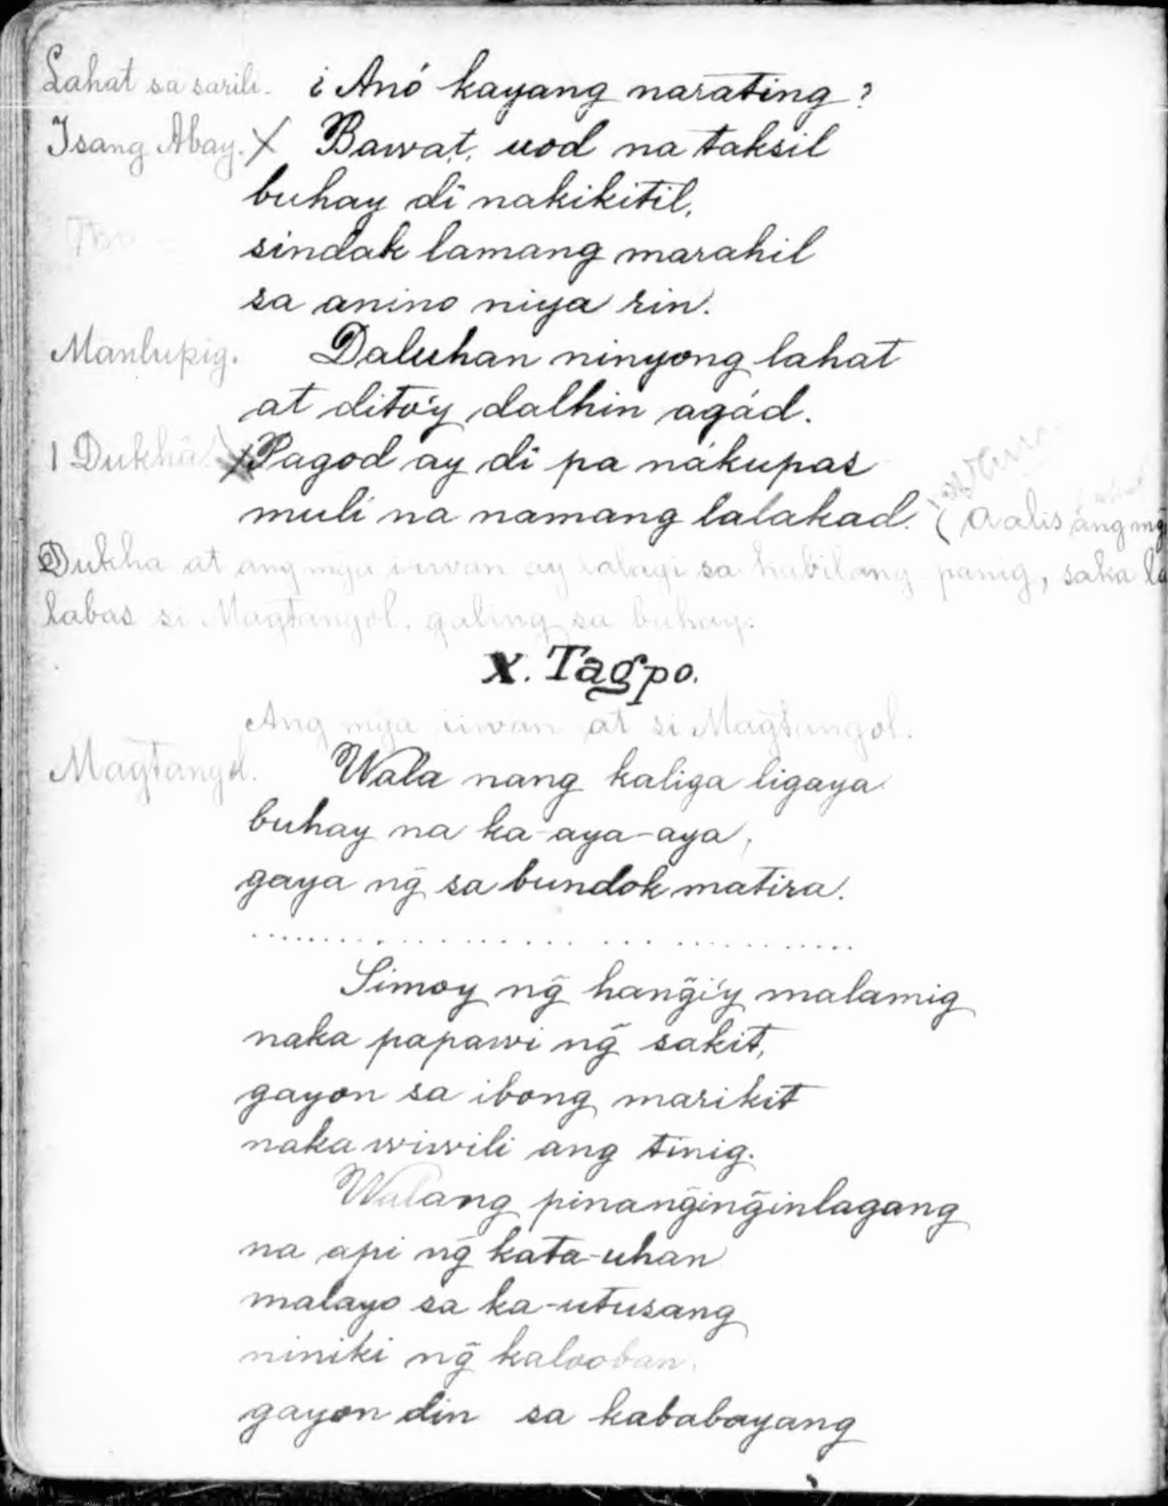 Lahat sa sarili. ¿Anó kayang narating?
Isang Abay. X Bawat, uod na taksil
buhay di nakikitil,
sindak lamang marahil
sa anino niya rin.
Manlupig. Daluhan ninyong lahat
at dito'y dalhin agád.
1 Dukhâ. Pagod ay di pa nákupas
muli na namang lalakad. (Aalis ang mg̃
Dukha at ang mga iiwan ay lalagi sa kabilang panig, saka la
labas si Magtangol. galing sa buhay.
X. Tagpo.
Ang mga iiwan at si Magtangol.
Magtangol. Wala nang kaliga ligaya
buhay na ka-aya-aya,
gaya ng̃ sa bundok matira.
Simoy ng̃ hang̃i'y malamig
naka papawi ng̃ sakit,
gayon sa ibong marikit
naka wiwili ang tinig.
Walang pinang̃ing̃inlagang
na api ng̃ kata-uhan
malayo sa ka-utusang
niniki ng̃ kalooban,
gayon din sa kababayang